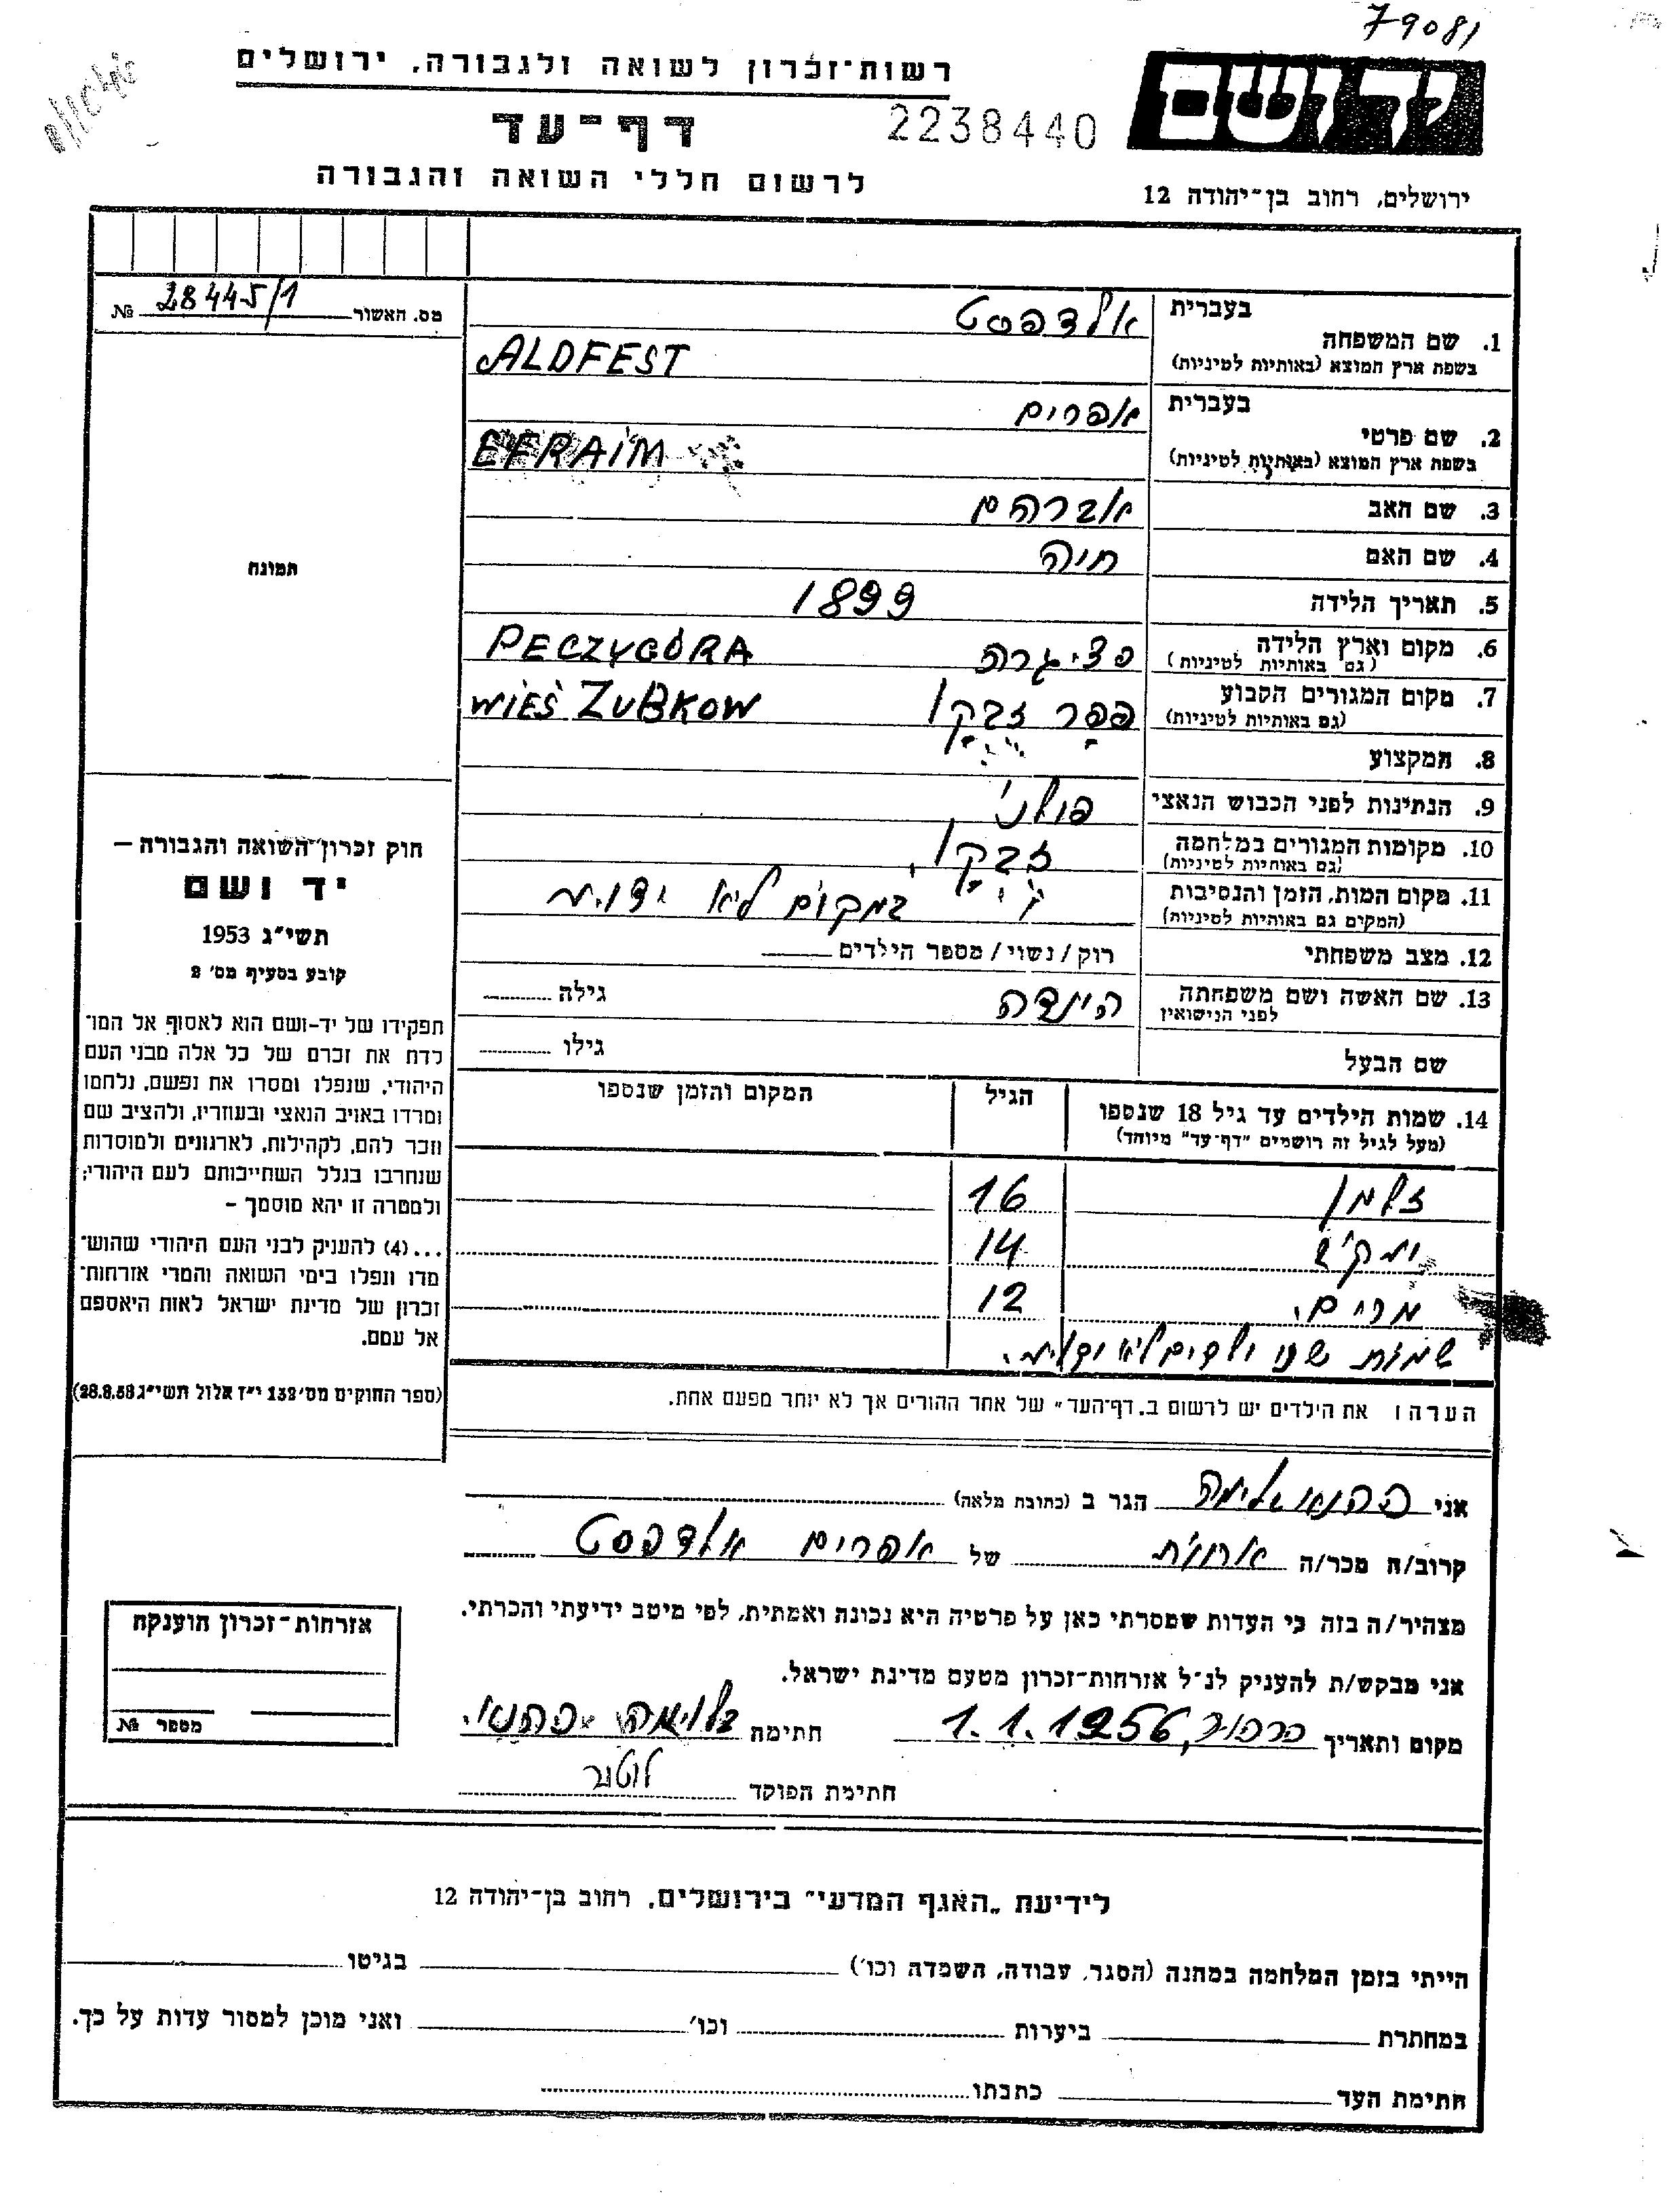 79081
רשות־זכרון לשואה ולגבורה, ירושלים
יד ושם
2238440
דף־עד
לרשום חללי השואה והגבורה
ירושלים, רחוב בן־יהודה 12
מס. האשור 28445/1 №
תמונה
1. שם המשפחה
בעברית אלדפסט
בשפת ארץ המוצא (באותיות לטיניות) ALDFEST
2. שם פרטי
בעברית אפרים
בשפת ארץ המוצא (באותיות לטיניות) EFRAIM
3. שם האב אברהם
4. שם האם חיה
5. תאריך הלידה 1899
6. מקום וארץ הלידה פצ'יגרה PECZYGÓRA
(גם באותיות לטיניות)
7. מקום המגורים הקבוע כפר זבקו WIEŚ ZUBKOW
(גם באותיות לטיניות)
8. המקצוע
9. הנתינות לפני הכבוש הנאצי פולני
10. מקומות המגורים במלחמה זבקו
(גם באותיות לטיניות)
11. מקום המות, הזמן והנסיבות במקום לא ידוע
(המקום גם באותיות לטיניות)
12. מצב משפחתי רוק/נשוי/מספר הילדים
13. שם האשה ושם משפחתה הינדה גילה
לפני הנישואין
שם הבעל גילו
14. שמות הילדים עד גיל 18 שנספו הגיל המקום והזמן שנספו
(מעל לגיל זה רושמים "דף־עד" מיוחד)
זלמן 16
14
מרים 12
שמות שני ילדים לא
הערה: את הילדים יש לרשום ב„דף־העד" של אחד ההורים אך לא יותר מפעם אחת.
חוק זכרון־השואה והגבורה —
יד ושם
תשי"ג 1953
קובע בסעיף מס' 2
תפקידו של יד-ושם הוא לאסוף אל המו־
לדת את זכרם של כל אלה מבני העם
היהודי, שנפלו ומסרו את נפשם, נלחמו
ומרדו באויב הנאצי ובעוזריו, ולהציב שם
וזכר להם, לקהילות, לארגונים ולמוסדות
שנחרבו בגלל השתייכותם לעם היהודי;
ולמטרה זו יהא מוסמך –
...(4) להעניק לבני העם היהודי שהוש־
מדו ונפלו בימי השואה והמרי אזרחות־
זכרון של מדינת ישראל לאות היאספם
אל עמם.
(ספר החוקים מס' 132 י"ז אלול תשי"ג 28.8.53)
אני כהנא שלימה הגר ב (כתובת מלאה)
קרוב/ה מכר/ה אחות של אפרים אלדפסט
מצהיר/ה בזה כי העדות שמסרתי כאן על פרטיה היא נכונה ואמתית, לפי מיטב ידיעתי והכרתי.
אני מבקש/ת להעניק לנ"ל אזרחות־זכרון מטעם מדינת ישראל.
מקום ותאריך כרכור, 1.1.1956 חתימה שלימה כהנא
חתימת הפוקד
אזרחות־זכרון הוענקה
מספר №
לידיעת „האגף המדעי" בירושלים, רחוב בן־יהודה 12
הייתי בזמן המלחמה במחנה (הסגר, עבודה, השמדה וכו') בגיטו
במחתרת ביערות וכו' ואני מוכן למסור עדות על כך.
חתימת העד כתבתו